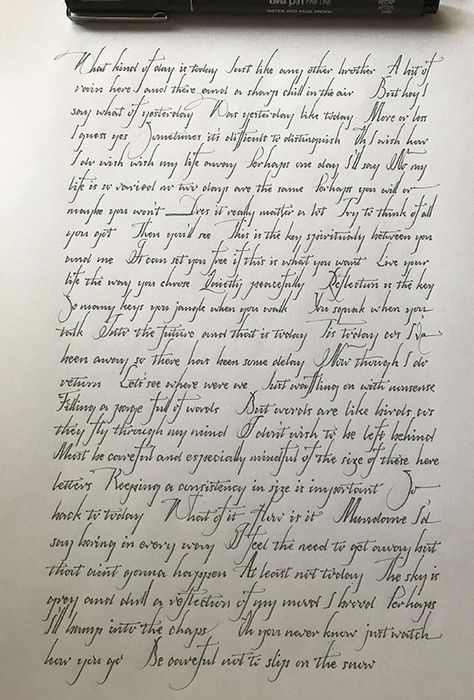 uni pin FINE LINE
WATER AND FADE PROOF
RECAP
AFTER
USE
What kind of day is today Just like any other brother A bit of
rain here and there and a sharp chill in the air But hey I
say what of yesterday Was yesterday like today More or less
I guess yes Sometimes its difficult to distinguish Oh I wish how
I do wish wish my life away Perhaps one day I'll say No my
life is so varied no two days are the same Perhaps you will or
maybe you won't Does it really matter a lot Try to think of all
you got Then you'll see This is the key spiritually between you
and me It can set you free if this is what you want Live your
life the way you choose Quietly peacefully Reflection is the key
So many keys you jangle when you walk You squeak when you
talk Into the future and that is today Tis today cos I've
been away so there has been some delay Now though I do
return Let's see where were we Just waffling on with nonsense
Filling a page full of words But words are like birds cos
they fly through my mind I don't wish to be left behind
Must be careful and especially mindful of the size of these here
letters Keeping a consistency in size is important So
back to today What of it How is it Mundane I'd
say boring in every way I feel the need to get away but
that aint gonna happen At least not today The sky is
grey and dull a reflection of my mood I brood Perhaps
I'll bump into the chaps Oh you never know just watch
how you go Be careful not to slip on the snow